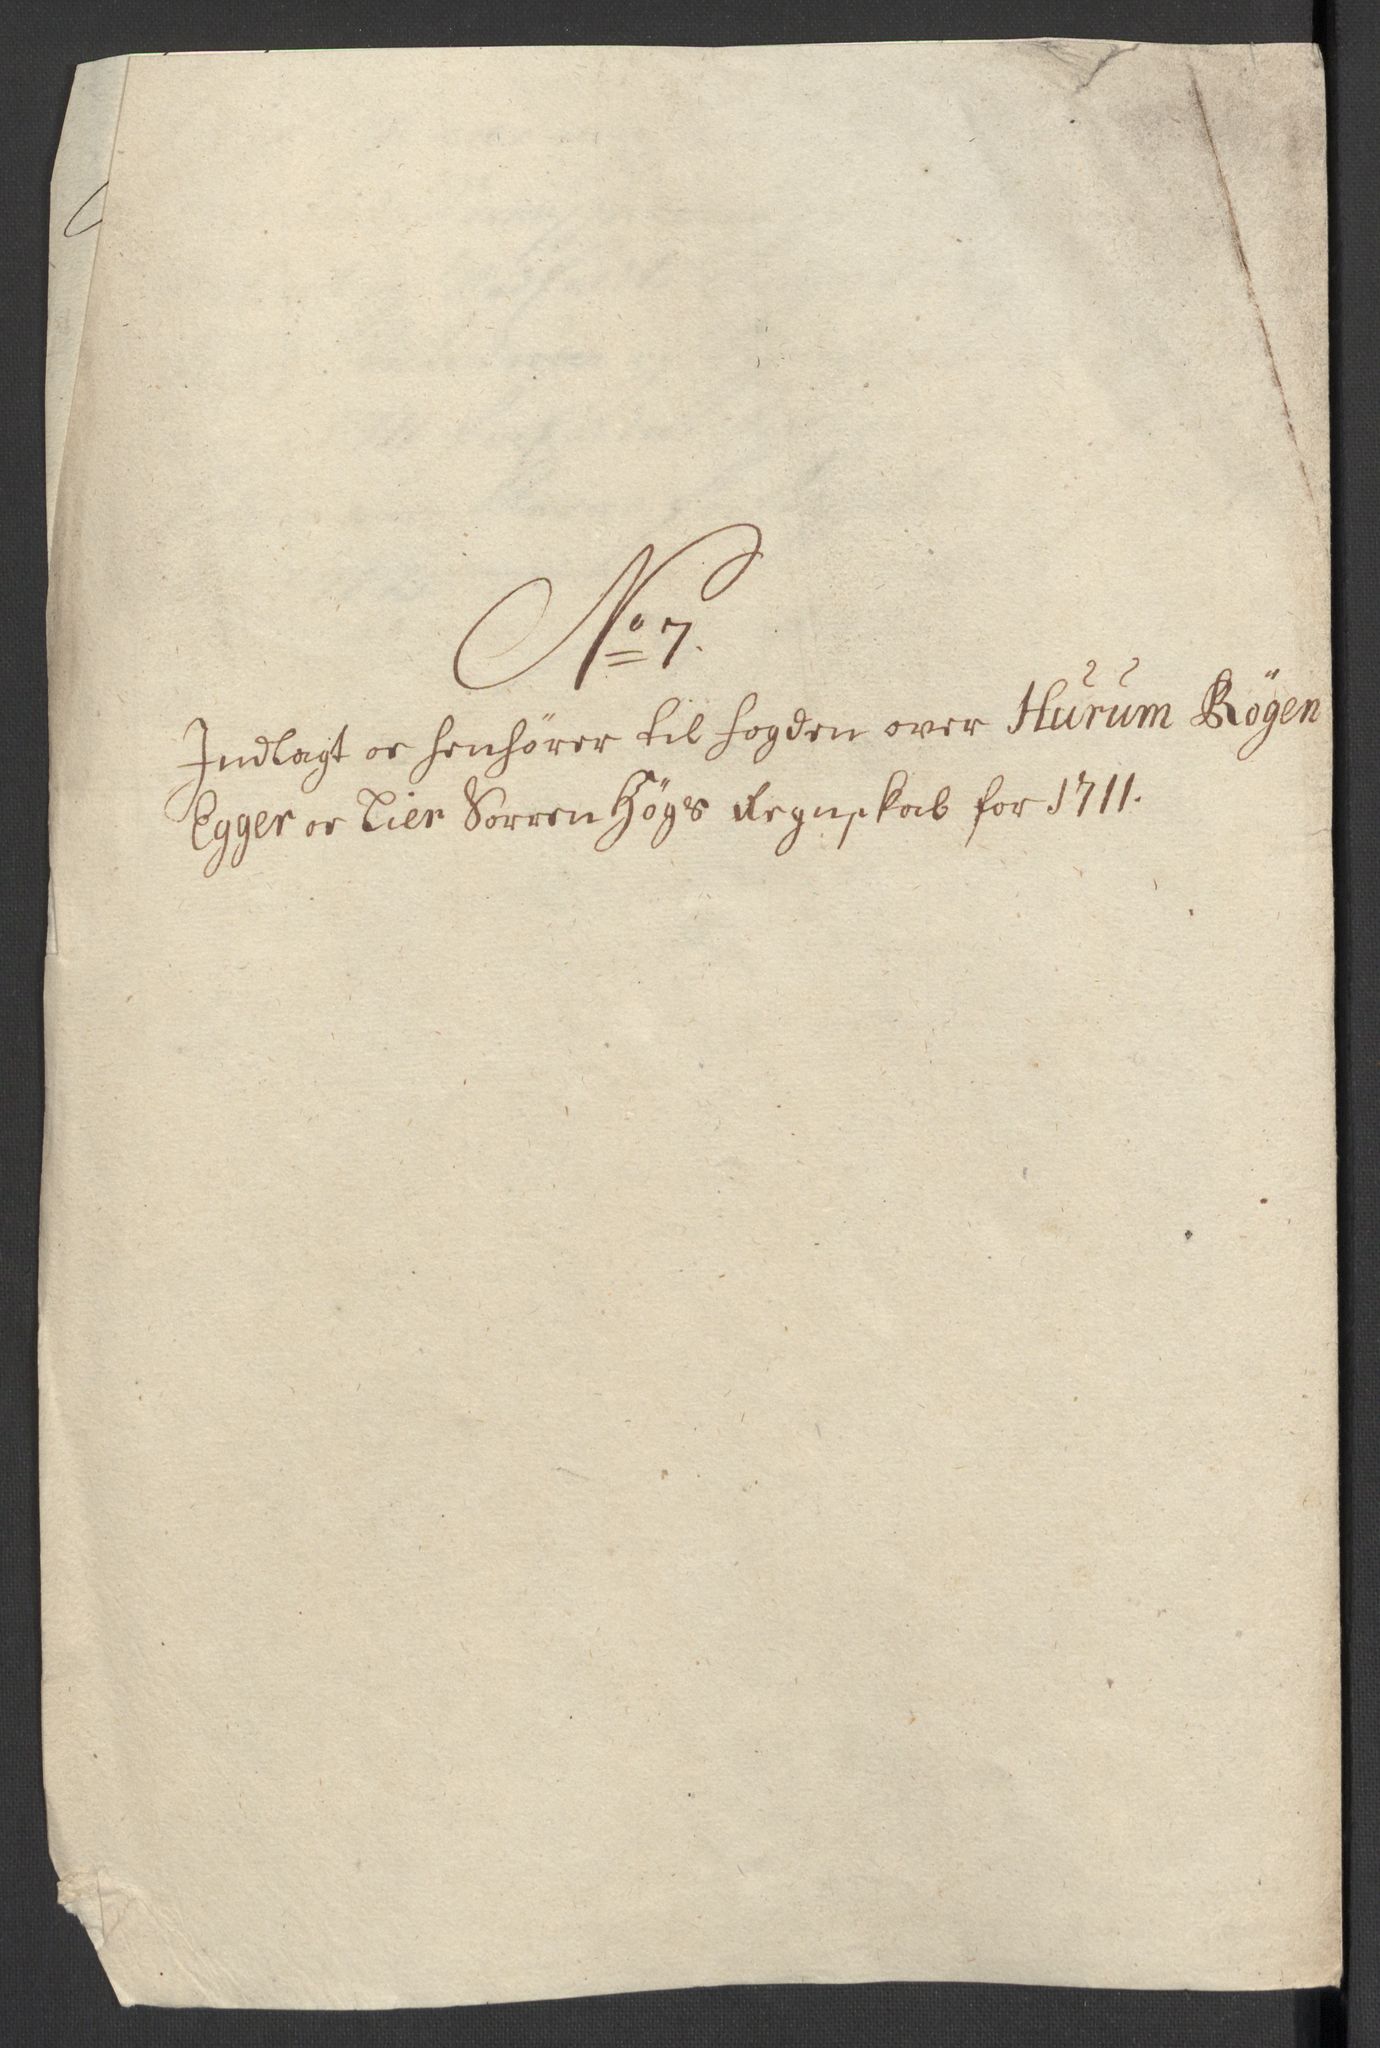 No 7.
Indlagt oc henhører til fogden over Hurum Røgen
Egger oc Lier Sørren Høgs Regnskab for 1711.